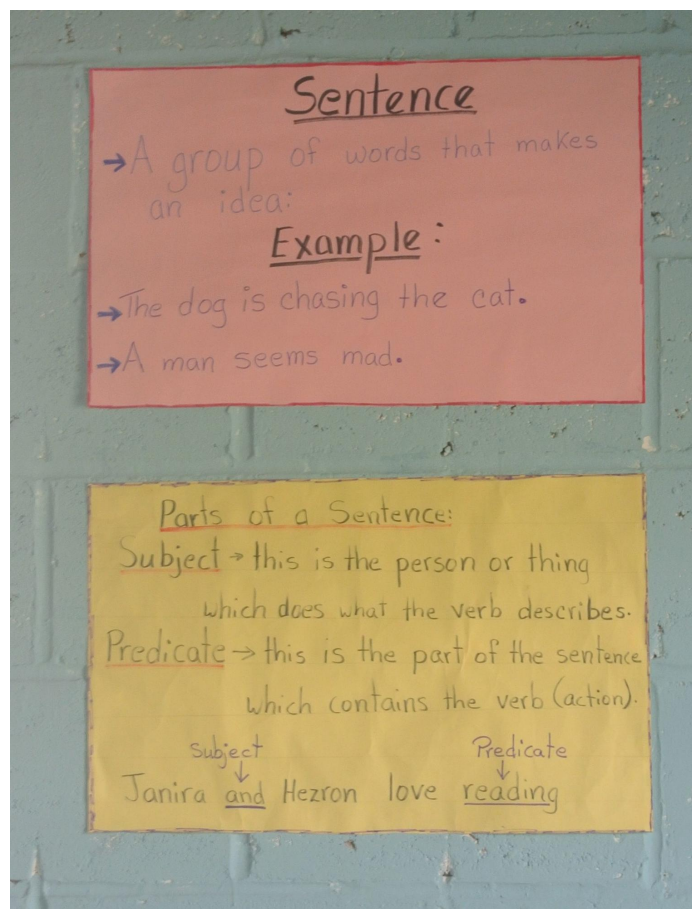 Sentence
→ A group of words that makes
an idea:
Example:
→ The dog is chasing the cat.
→ A man seems mad.
Parts of a Sentence:
Subject → this is the person or thing
which does what the verb describes.
Predicate → this is the part of the sentence
which contains the verb (action).
Subject Predicate
↓ ↓
Janira and Hezron love reading